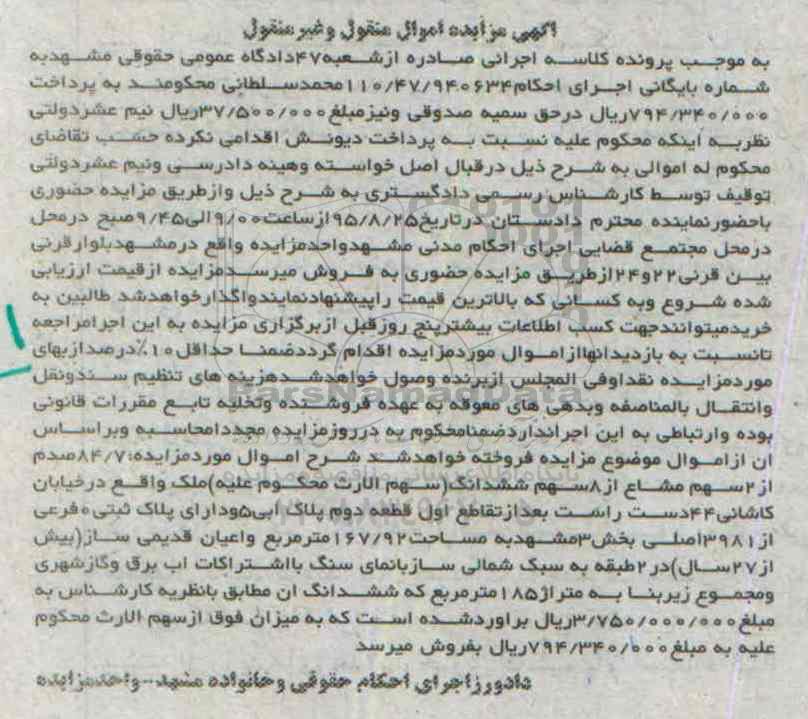 اگهی مزایده اموال منقول و غیر منقول
به موجب پرونده کلاسه اجرائی صادره ازشعبه۴۷دادگاه عمومی حقوقی مشهدبه
شماره بایگانی اجرای احکام۱۱۰/۴۷/۹۴۰۶۳۴محمدسلطانی محکومند به پرداخت
۷۹۴/۳۴۰/۰۰۰ریال درحق سمیه صدوقی ونیزمبلغ۳۷/۵۰۰/۰۰۰ریال نیم عشردولتی
نظربه اینکه محکوم علیه نسبت به پرداخت دیونش اقدامی نکرده حسب تقاضای
محکوم له اموالی به شرح ذیل درقبال اصل خواسته وهینه دادرسی ونیم عشردولتی
توقیف توسط کارشناس رسمی دادگستری به شرح ذیل وازطریق مزایده حضوری
باحضورنماینده محترم دادستان درتاریخ۹۵/۸/۲۵ازساعت۹/۰۰الی۹/۴۵صبح درمحل
درمحل مجتمع قضایی اجرای احکام مدنی مشهدواحدمزایده واقع درمشهدبلوارقرنی
بین قرنی۲۲و۲۴ازطریق مزایده حضوری به فروش میرسدمزایده ازقیمت ارزیابی
شده شروع وبه کسانی که بالاترین قیمت راپیشنهادنمایندواگذارخواهدشد طالبین به
خریدمیتوانندجهت کسب اطلاعات بیشترپنج روزقبل ازبرگزاری مزایده به این اجرامراجعه
تانسبت به بازدیدانهاازاموال موردمزایده اقدام گرددضمنا حداقل۱۰٪درصدازبهای
موردمزایده نقداوفی المجلس ازبرنده وصول خواهدشدهزینه های تنظیم سندونقل
وانتقال بالمناصفه وبدهی های معوقه به عهده فروشنده وتخلیه تابع مقررات قانونی
بوده وارتباطی به این اجرانداردضمنامحکوم به درروزمزایده مجددامحاسبه وبراساس
ان ازاموال موضوع مزایده فروخته خواهدشد شرح اموال موردمزایده:۸۴/۷صدم
از۲سهم مشاع از۸سهم ششدانگ(سهم الارث محکوم علیه)ملک واقع درخیابان
کاشانی۴۴دست راست بعدازتقاطع اول قطعه دوم پلاک ابی۵ودارای پلاک ثبتی۰فرعی
از۳۹۸۱اصلی بخش۳مشهدبه مساحت۱۶۷/۹۲مترمربع واعیان قدیمی ساز(بیش
از۲۷سال)در۲طبقه به سبک شمالی سازبانمای سنگ بااشتراکات اب برق وگازشهری
ومجموع زیربنا به متراژ۱۸۵مترمربع که ششدانگ ان مطابق بانظریه کارشناس به
مبلغ۳/۷۵۰/۰۰۰/۰۰۰ریال براوردشده است که به میزان فوق ازسهم الارث محکوم
علیه به مبلغ۷۹۴/۳۴۰/۰۰۰ریال بفروش میرسد
دادورزاجرای احکام حقوقی وخانواده مشهد-واحدمزایده
ParsNamadData